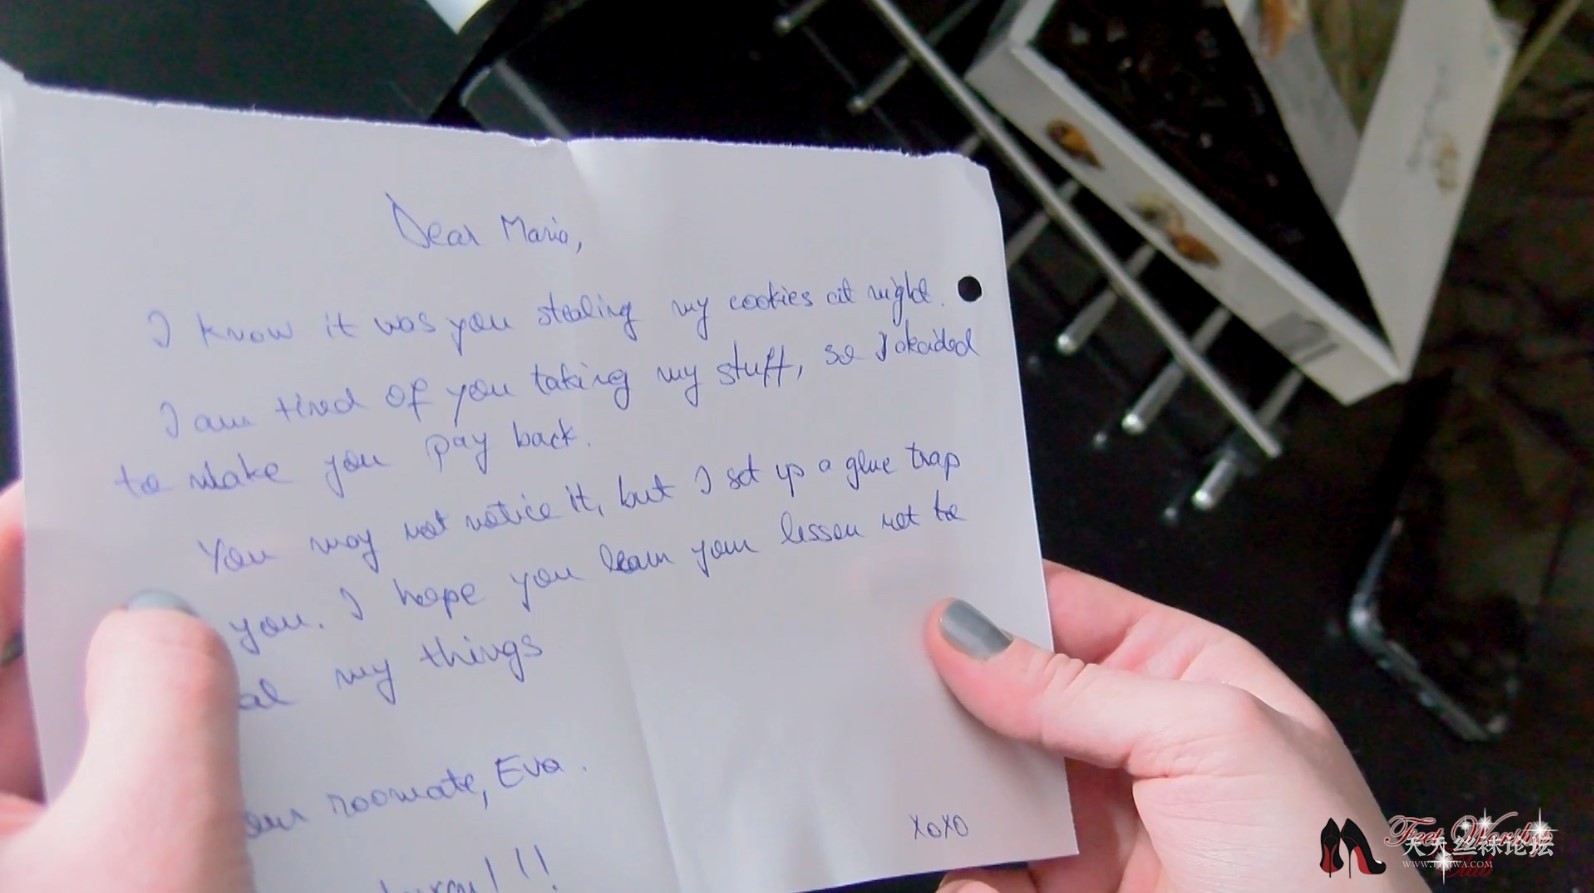 Dear Maria,
I know it was you stealing my cookies at night.
I am tired of you taking my stuff, so I decided
to make you pay back.
You may not notice it, but I set up a glue trap
you. I hope you learn your lesson not to
al my things
our roomate, Eva.
XOXO
!!!
Feet Worship
天天丝袜论坛
Club